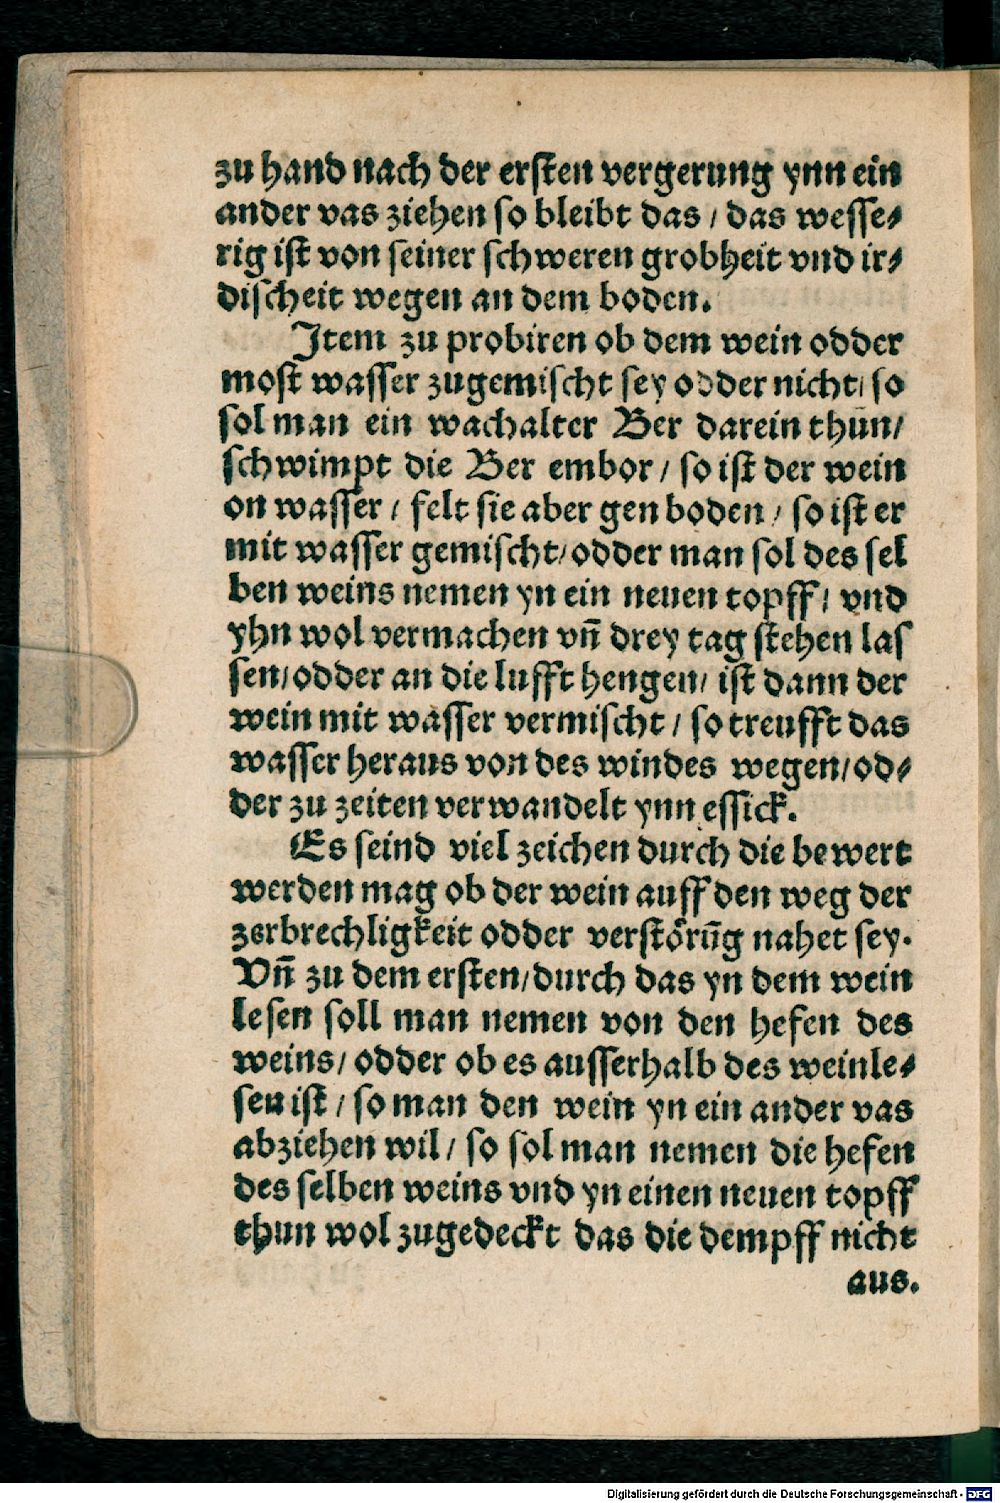 zu hand nach der ersten vergerung ynn ein
ander vas ziehen so bleibt das / das wesse⸗
rig ist von seiner schweren grobheit vnd ir⸗
discheit wegen an dem boden.
Item zu probiren ob dem wein odder
most wasser zugemischt sey odder nicht / so
sol man ein wachalter Ber darein thun /
schwimpt die Ber embor / so ist der wein
on wasser / felt sie aber gen boden / so ist er
mit wasser gemischt / odder man sol des sel
ben weins nemen yn ein neuen topff / vnd
yhn wol vermachen vn̄ drey tag stehen las
sen / odder an die lufft hengen / ist dann der
wein mit wasser vermischt / so treufft das
wasser heraus von des windes wegen / od⸗
der zu zeiten verwandelt ynn essick.
Es seind viel zeichen durch die bewert
werden mag ob der wein auff den weg der
zerbrechligkeit odder verstörūg nahet sey.
Vn̄ zu dem ersten / durch das yn dem wein
lesen soll man nemen von den hefen des
weins / odder ob es ausserhalb des weinle⸗
sen ist / so man den wein yn ein ander vas
abziehen wil / so sol man nemen die hefen
des selben weins vnd yn einen neuen topff
thun wol zugedeckt das die dempff nicht
aus.
Digitalisierung gefördert durch die Deutsche Forschungsgemeinschaft - DFG